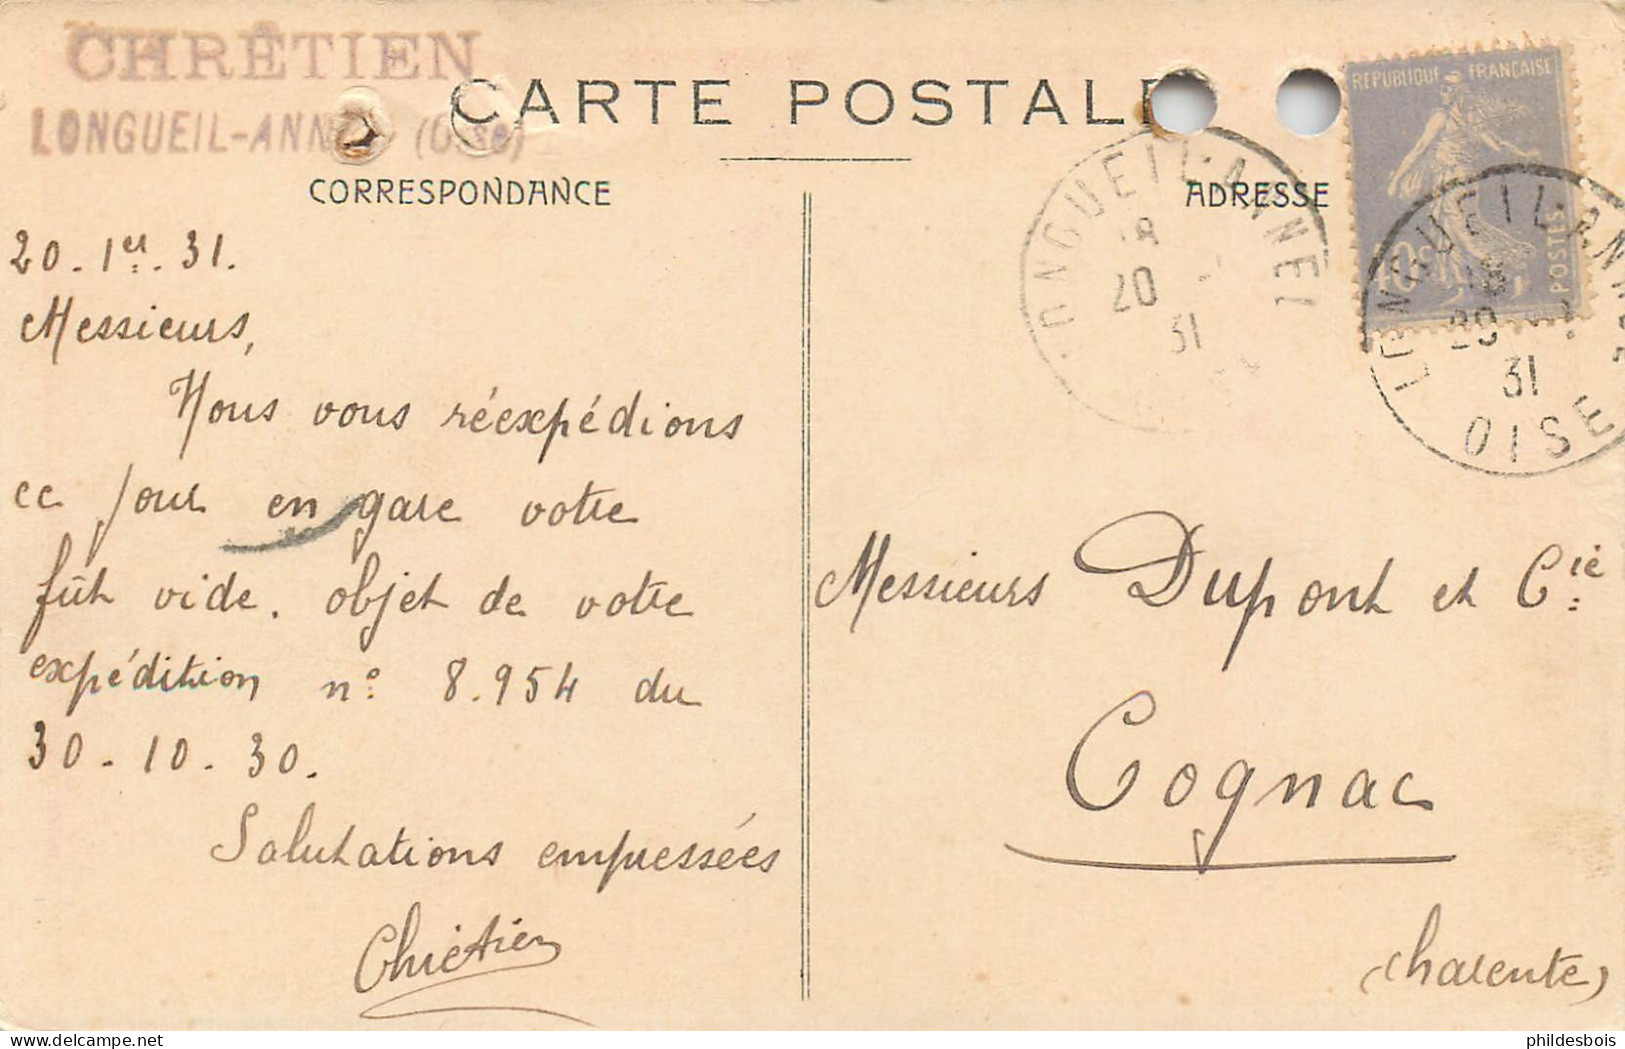 CHRÊTIEN
LONGUEIL-ANN (Oise)
CARTE POSTALE
CORRESPONDANCE
ADRESSE
REPUBLIQUE FRANÇAISE
POSTES
LONGUEIL-ANNEL
18
20
31
LONGUEIL-ANNEL
18
20
31
OISE
20. 1er. 31.
Messieurs,
Nous vous réexpédions
ce jour en gare votre
fût vide. objet de votre
expédition n° 8.954 du
30.10.30.
Salutations empressées
Chrétien
Messieurs Dupont et Cie
Cognac
(Charente)
phildesbois